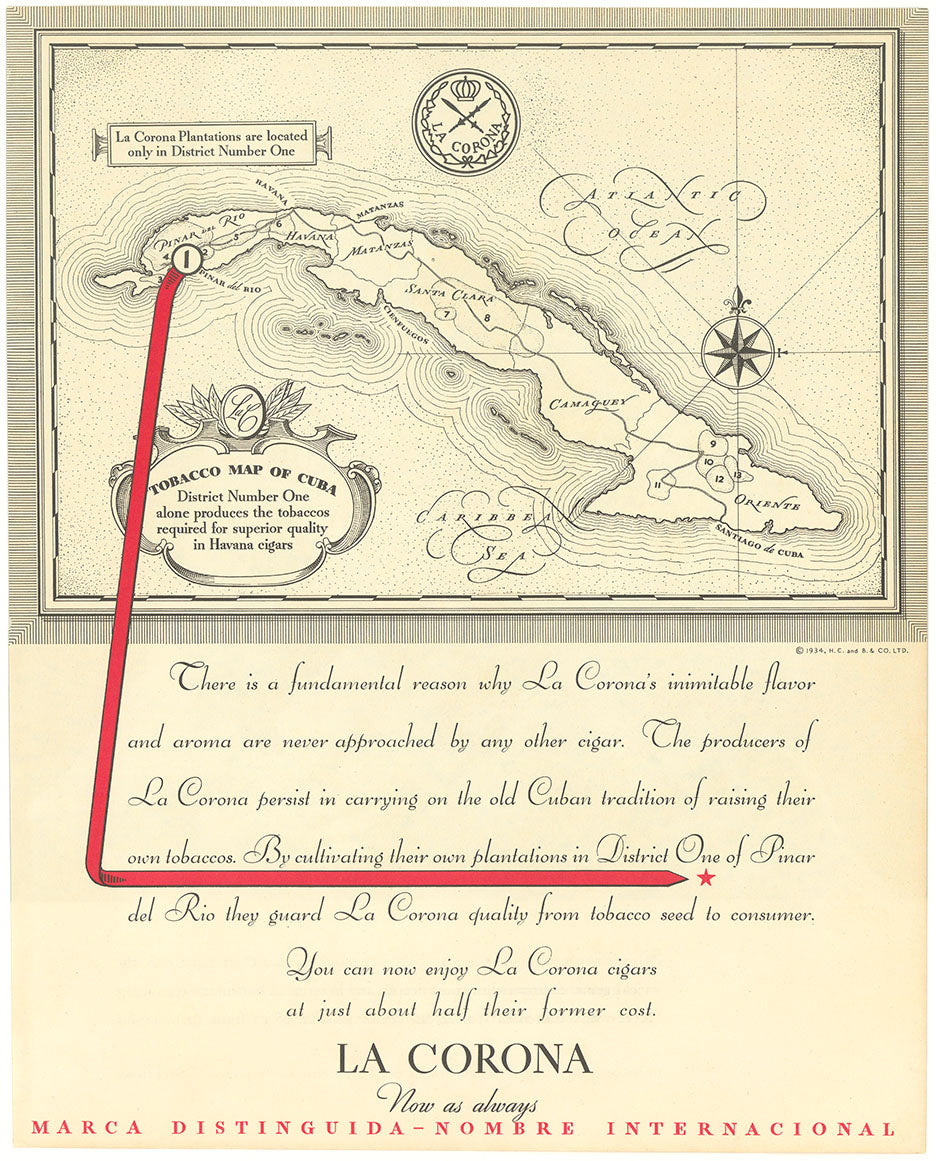 La Corona Plantations are located
only in District Number One
LA CORONA
ATLANTIC
OCEAN
HAVANA
MATANZAS
PINAR DEL RIO
HAVANA
MATANZAS
1
2
3
4
5
6
PINAR del RIO
SANTA CLARA
7
8
CIENFUEGOS
CAMAGUEY
9
10
11
12
13
ORIENTE
SANTIAGO de CUBA
CARIBBEAN
SEA
LaC
TOBACCO MAP OF CUBA
District Number One
alone produces the tobaccos
required for superior quality
in Havana cigars
© 1934, H. C. and B. & CO. LTD.
There is a fundamental reason why La Corona's inimitable flavor
and aroma are never approached by any other cigar. The producers of
La Corona persist in carrying on the old Cuban tradition of raising their
own tobaccos. By cultivating their own plantations in District One of Pinar
del Rio they guard La Corona quality from tobacco seed to consumer.
You can now enjoy La Corona cigars
at just about half their former cost.
LA CORONA
Now as always
MARCA DISTINGUIDA–NOMBRE INTERNACIONAL